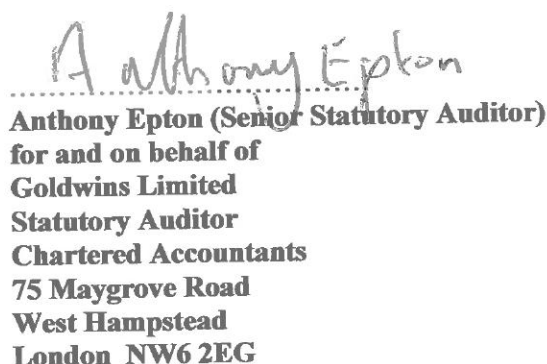 Anthony Epton
Anthony Epton (Senior Statutory Auditor)
for and on behalf of
Goldwins Limited
Statutory Auditor
Chartered Accountants
75 Maygrove Road
West Hampstead
London NW6 2EG